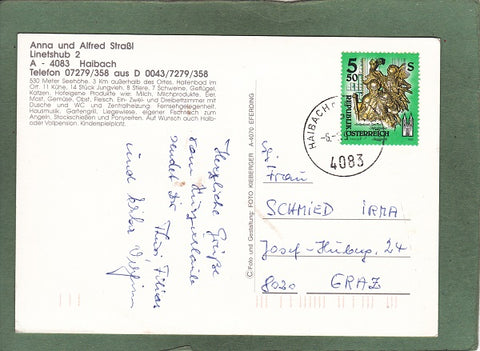 Anna und Alfred Straßl
Linetshub 2
A - 4083 Haibach
Telefon 07279/358 aus D 0043/7279/358
530 Meter Seehöhe, 3 Km außerhalb des Ortes, Hallenbad im
Ort. 11 Kühe, 14 Stück Jungvieh, 8 Stiere, 7 Schweine, Geflügel,
Katzen. Hofeigene Produkte wie: Milch, Milchprodukte, Eier,
Most, Gemüse, Obst, Fleisch. Ein- Zwei- und Dreibettzimmer mit
Dusche und WC und Zentralheizung. Fernsehgelegenheit,
Hausmusik, Gartengrill, Liegewiese, eigene Fischteich zum
Angeln, Stockschießen und Ponyreiten. Auf Wunsch auch Halb-
oder Vollpension. Kinderspielplatz.
Herzliche Grüße
vom Kurzurlaub
sendet Dir
und
© Foto und Gestaltung: FOTO KIEBERGER A-4070 EFERDING
5 50 S
REPUBLIK
ÖSTERREICH
HAIBACH
4083
Frau
SCHMIED IRMA
Josef-Huber, 24
8020 GRAZ